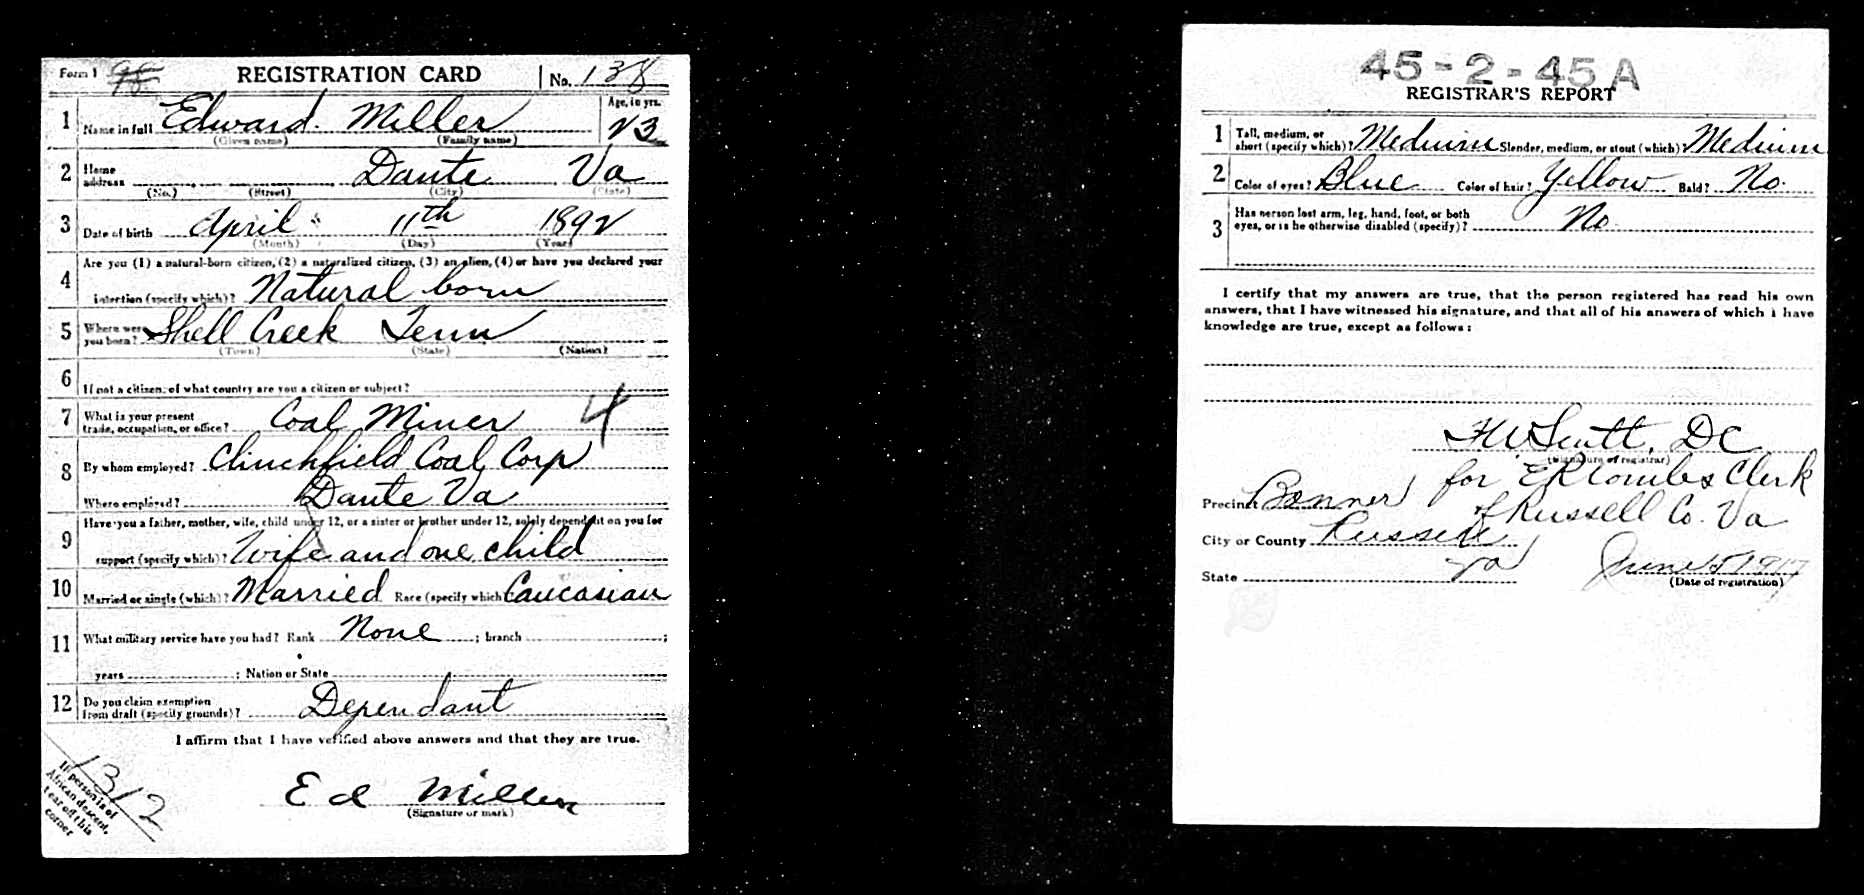 Form 1 98 REGISTRATION CARD No. 138
1 Name in full Edward Miller Age, in yrs. 23
(Given name) (Family name)
2 Home address Dante Va
(No.) (Street) (City) (State)
3 Date of birth April 11th 1892
(Month) (Day) (Year)
4 Are you (1) a natural-born citizen, (2) a naturalized citizen, (3) an alien, (4) or have you declared your
intention (specify which)? Natural born
5 Where were you born? Shell Creek Tenn
(Town) (State) (Nation)
6 If not a citizen, of what country are you a citizen or subject?
7 What is your present trade, occupation, or office? Coal Miner 4
8 By whom employed? Clinchfield Coal Corp
Where employed? Dante Va
9 Have you a father, mother, wife, child under 12, or a sister or brother under 12, solely dependent on you for
support (specify which)? Wife and one child
10 Married or single (which)? Married Race (specify which) Caucasian
11 What military service have you had? Rank None ; branch ;
years ; Nation or State
12 Do you claim exemption from draft (specify grounds)? Dependant
I affirm that I have verified above answers and that they are true.
Ed Miller
(Signature or mark)
1312
If person is of
African descent,
tear off this
corner
45-2-45A
REGISTRAR'S REPORT
1 Tall, medium, or short (specify which)? Medium Slender, medium, or stout (which)? Medium
2 Color of eyes? Blue Color of hair? Yellow Bald? No.
3 Has person lost arm, leg, hand, foot, or both
eyes, or is he otherwise disabled (specify)? No
I certify that my answers are true, that the person registered has read his own
answers, that I have witnessed his signature, and that all of his answers of which I have
knowledge are true, except as follows:
DC
(Signature of registrar)
for E R Combs Clerk
Precinct Bonner of Russell Co. Va
City or County Russell
State Va June 5 1917
(Date of registration)